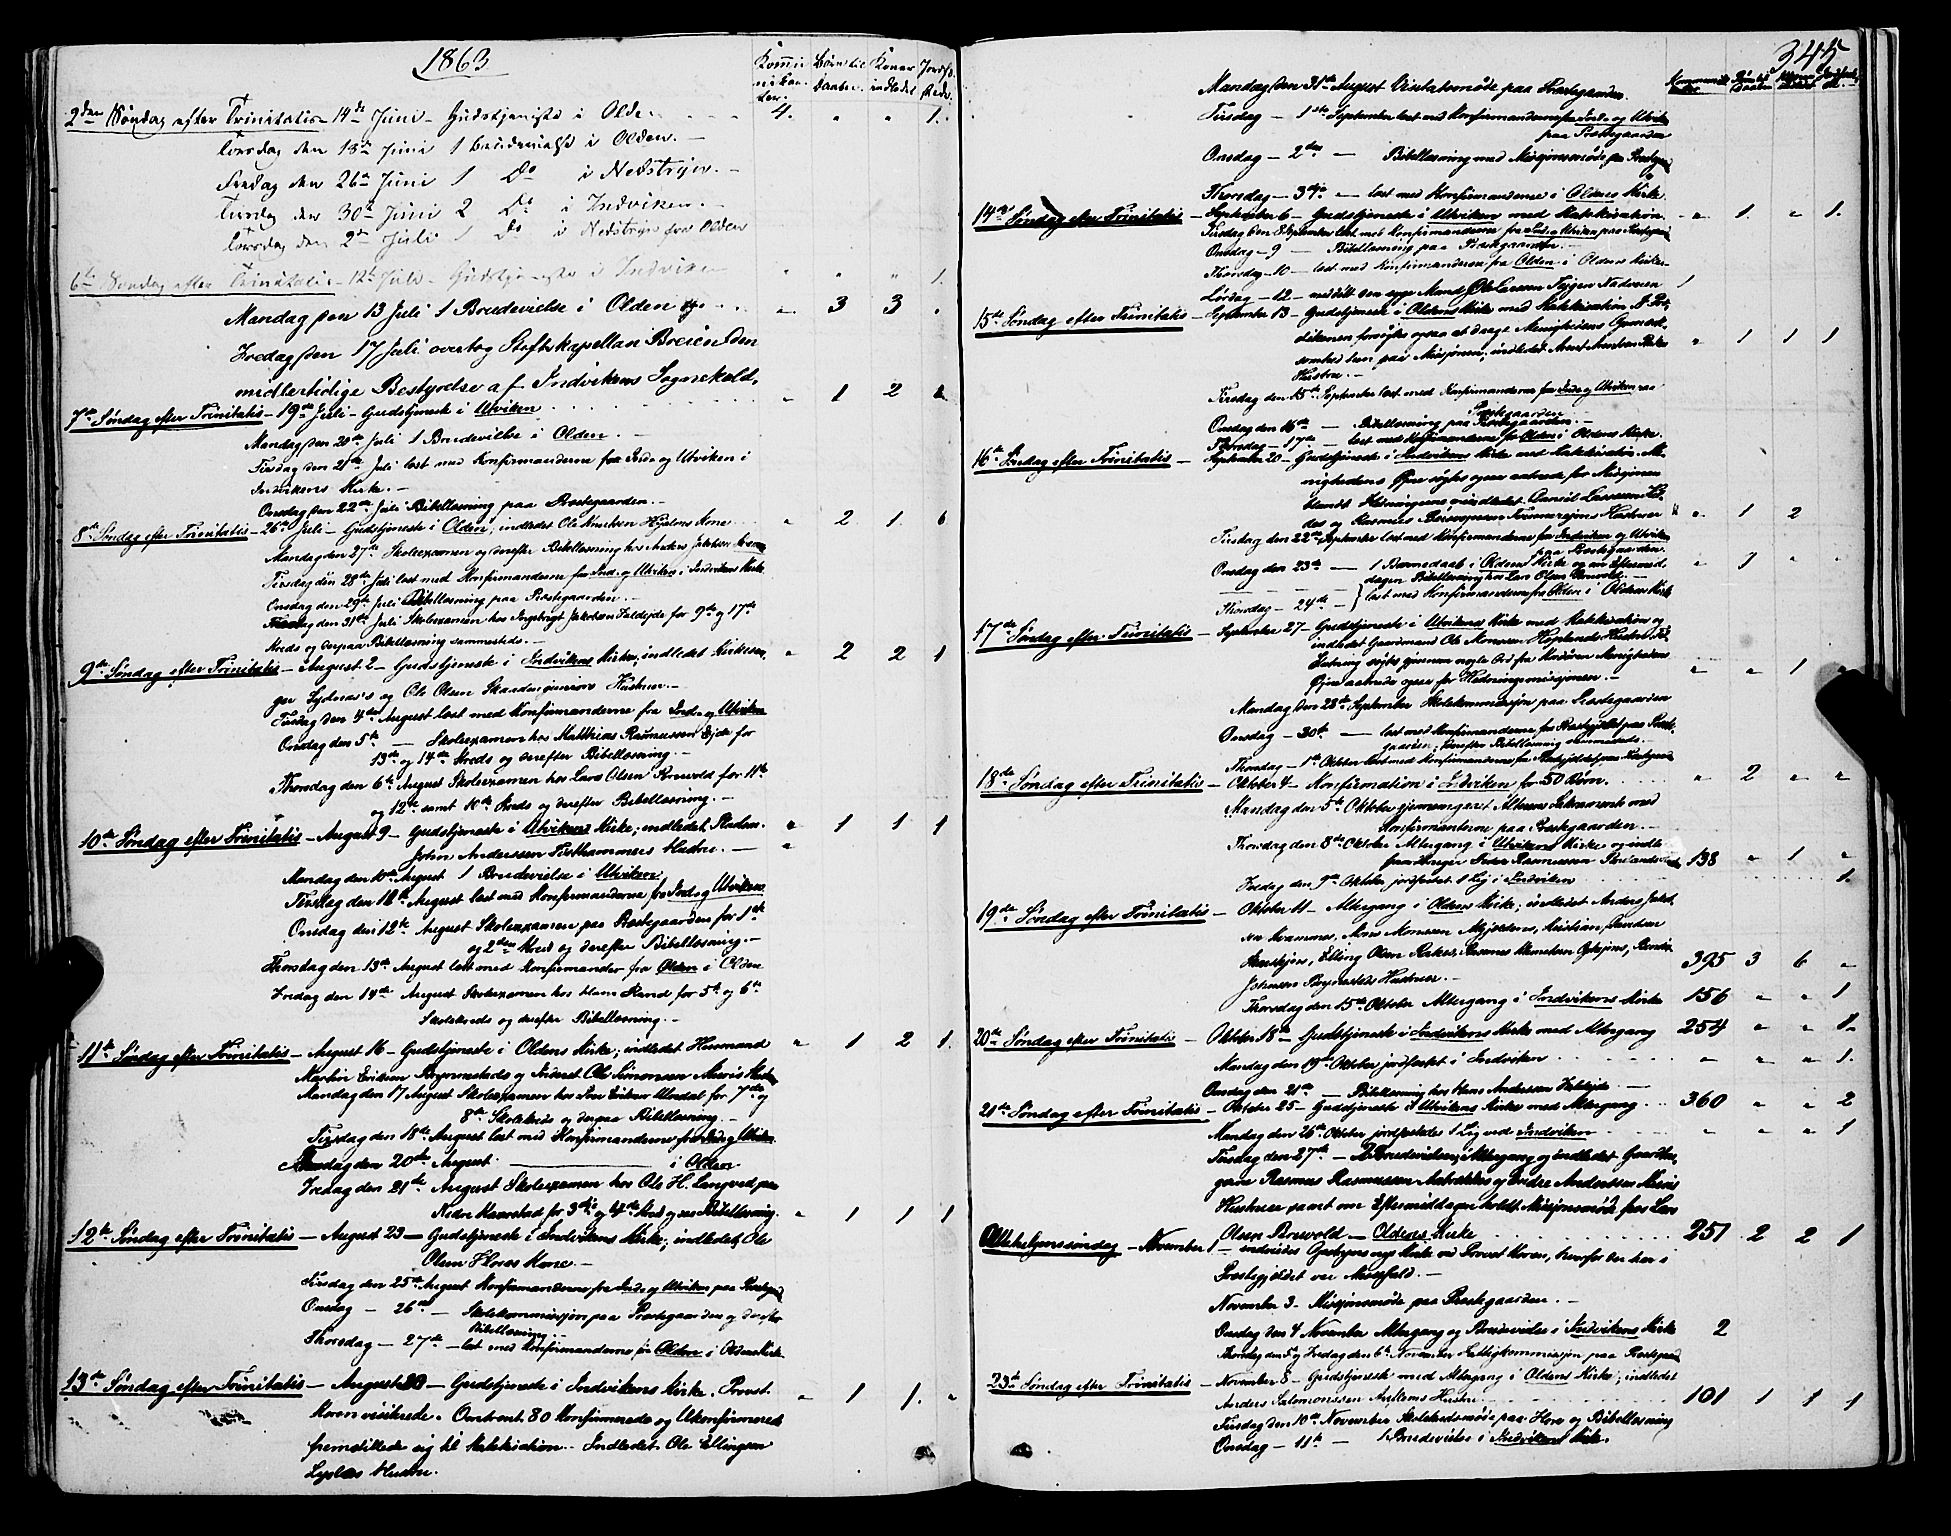 1863
Kommunikanter. Børn til Daaben. Koner indledet Jordfæstede.
2den Søndag efter Trinitatis 14de Juni - Gudstjeneste i Olden 4. " " 1.
Torsdag den 18de Juni 1 Brudevielse i Olden.
Fredag den 26de Juni 1 Do i Nedstryn. -
Tirsdag den 30te Juni 2 Do i Indviken. -
Torsdag den 2de Juli 1 Do i Nedstryn fra Olden
6te Søndag efter Trinitatis 12te Juli - Gudstjeneste i Indviken " " " 1.
Mandag den 13 Juli 1 Brudevielse i Olden - 3 3 .
Fredag den 17 Juli overtog Stiftskapellan Breien den
midlertidige Bestyrelse af Indvikens Sognekald. " 1 2
7de Søndag efter Trinitatis - 19de Juli - Gudstjeneste i Utviken
Mandag den 20de Juli 1 Brudevielse i Olden. -
Tirsdag den 21de Juli læst med Konfirmanderne fra Indv. og Utviken i
Indvikens Kirke. -
Onsdag den 22de Juli Bibellæsning paa Præstegaarden. -
8de Søndag efter Trinitatis - 26de Juli - Gudstjeneste i Olden, indledet Ole Knutsen Hjelens Kone " 2 1. 6
Mandag den 27de Skoleexamen og derefter Bibellæsning hos Anders Jakobsen
Tirsdag den 28de Juli læst med Konfirmanderne fra Ind. og Utviken i Indvikens Kirke
Onsdag den 29de Juli Bibellæsning paa Præstegaarden. -
Fredag den 31te Juli Skoleexamen hos Ingebrigt Jakobsen Faldejde for 9de og 17de
Kreds og derpaa Bibellæsning sammesteds. -
9de Søndag efter Trinitatis - August 2 - Gudstjeneste i Indvikens Kirke, indledet Kirkesan- " 2 2 1
ger Sydnæs's og Ole Olsen Skaadens juniors Hustruer. -
Tirsdag den 4de August læst med Konfirmanderne fra Ind. og Utviken
Onsdag den 5te - Skoleexamen hos Matthias Rasmussen Ejde for
13de og 14de Kreds og derefter Bibellæsning. -
Thorsdag den 6te August Skoleexamen hos Lars Olsen Bruvold for 11te
og 12te samt 10de Kreds og derefter Bibellæsning. -
10de Søndag efter Trinitatis - August 9 - Gudstjeneste i Utvikens Kirke; indledet " 1 1 1
John Anderssen Tisthammers Hustru. -
Mandag den 10de August 1 Brudevielse i Utviken
Tirsdag den 11te August læst med Konfirmanderne fra Ind. og Utviken
Onsdag den 12te August Skoleexamen paa Præstegaarden for 1ste
og 2den Kreds og derefter Bibellæsning. -
Thorsdag den 13de August læst med Konfirmander fra Olden i Olden
Fredag den 14de August Skoleexamen hos Rand for 5te og 6te
Skolekreds og derefter Bibellæsning. -
11te Søndag efter Trinitatis - August 16 - Gudstjeneste i Oldens Kirke; indledet Husmand " 1 2 1.
Martin Eriksen Brynnestads og Inderst Ole Simonsen
Mandag den 17 August Skoleexamen hos Jon Eriksen for 7de og
8de Skolekreds og derpaa Bibellæsning. -
Tirsdag den 18de August læst med Konfirmanderne fra Ind. og Utviken
Thorsdag den 20de August - i Olden
Fredag den 21de August Skoleexamen hos Ole H. Langved paa
Nedre for 3die og 4de Kreds og saa Bibellæsning. " 1 1 1
12te Søndag efter Trinitatis - August 23 - Gudstjeneste i Indvikens Kirke; indledet Ole
Olsen Flores Kone. -
Tirsdag den 25de August Konfirmanderne fra Ind. og Utviken paa Præstegaard
Onsdag - 26de - Skolekommissjon paa Præstegaarden og derefter
Bibellæsning -
Thorsdag - 27de - læst med Konfirmanderne fra Olden i Oldens Kirke
13de Søndag efter Trinitatis - August 30 - Gudstjeneste i Indvikens Kirke. Provst " 1 1. "
Koren visiterede. Omtrent 80 Konfirmerede og Ukonfirmerede
fremstillede sig til Katekisation. Indledet Ole Ellingsen
Hustru.
345
Mandag den 31te August Visitatsmøde paa Præstegaarden.
Tirsdag - 1ste September læst med Konfirmanderne fra Indv. og Utviken
paa Præstegaarden
Onsdag - 2den - Bibellæsning med Missjonsmøde paa Præstegaard
Thorsdag - 3die - læst med Konfirmanderne i Oldens Kirke
14de Søndag efter Trinitatis - September 6 - Gudstjeneste i Utviken med Katekisation. " 1. " 1.
Tirsdag den 8 September læst med Konfirmanderne fra Ind. og Utviken paa Præstegaard
Onsdag - 9 - Bibellæsning paa Præstegaarden. -
Thorsdag - 10 - læst med Konfirmanderne fra Olden i Oldens Kirke
Lørdag - 12 - meddelt den syge Mand Ole Larssen Nadveren 1
15de Søndag efter Trinitatis - September 13 - Gudstjeneste i Oldens Kirke med Katekisation. I Præ-
dikenen forsøgte ogsaa at drage Menighedens Opmærk-
somhed hen paa Missjonen; indledet Arent Arentsen " 1 1 1
Hustru. -
Tirsdag den 15de September læst med Konfirmanderne fra Ind. og Utviken paa
Præstegaarden
Onsdag den 16de - Bibellæsning paa Præstegaarden. -
Thorsdag - 17de - læst med Konfirmanderne fra Olden i Oldens Kirke.
16de Søndag efter Trinitatis - September 20 - Gudstjeneste i Indvikens Kirke med Katekisation. Me-
nighedens Øjne søgtes ogsaa aabnede for Missjonen
blandt Hedningerne; indledet Daniel Larssen
og Rasmus Hustruer " 1 2
Tirsdag den 22de September læst med Konfirmanderne fra Indviken og Utviken
paa Præstegaarden.
Onsdag den 23de - 1 Barnedaab i Oldens Kirke og om Eftermid- " 1 " "
dagen Bibellæsning hos Lars Olsen Bruvold. -
Thorsdag - 24de - læst med Konfirmanderne fra Olden i Oldens Kirke
17de Søndag efter Trinitatis - September 27 - Gudstjeneste i Utvikens Kirke med Katekisation og
indledet Gaardmand Ole Monssen Hustru.
søgte gjennem nogle Ord fra Kordøren Menighedens
Øjne aabnede ogsaa for Hedningemissjonen. - " " 1 "
Mandag den 28de September Skolekommissjon paa Præstegaarden
Onsdag - 30te - læst med Konfirmanderne fra Præstegjeldet paa Præste-
gaarden; derefter Bibellæsning sammesteds. -
Thorsdag - 1ste Oktober læst med Konfirmanderne fra Præstegjeldet paa Præstegaard
18de Søndag efter Trinitatis - Oktober 4 - Konfirmation i Indviken for 50 Børn. " 2 " "
Mandag den 5te Oktober gjennemgaaet Alterens Sakramente med
Konfirmanterne paa Præstegaarden. -
Thorsdag den 8de Oktober Altergang i Utvikens Kirke og indle-
Peder Rasmussen 138 " 1 "
Fredag den 9de Oktober jordfæstet 1 Lig i Indviken 1.
19de Søndag efter Trinitatis - Oktober 11 - Altergang i Oldens Kirke; indledet Anders Jakob-
sen Kvammes, Mons Monssen, Kristian Knudsen
Elling Olsen, Rasmus 395 3 6 "
Johnssen Brynestads Hustruer. -
Thorsdag den 15de Oktober Altergang i Indvikens Kirke 156 " " 1
20de Søndag efter Trinitatis - Oktober 18de - Gudstjeneste i Indvikens Kirke med Altergang 254 " " 1.
Mandag den 19de Oktober jordfæstet i Indviken " " " 1.
Onsdag den 21de - Bibellæsning hos Hans Anderssen Faldejde. -
21de Søndag efter Trinitatis - Oktober 25 - Gudstjeneste i Utvikens Kirke med Altergang 360 " " 2
Mandag den 26de Oktober jordfæstedes 1 Lig ved Indviken " " " 1
Tirsdag den 27de - 2 Brudevielser, Altergang og indledet Gaardbru-
gerne Rasmus Rasmussen Aabrekkes og Endre Anderssen
Hustruer samt om Eftermiddagen holdt Missjonsmøde hos Lars
Olsen Bruvold - Oldens Kirke 251 2 2 1
Allehelgenssøndag - November 1 - indviedes nye Kirke ved Provst Koren, hvorfor der her i
Præstegjeldet var Messefald. -
November 3 - Missjonsmøde paa Præstegaarden. -
Onsdag den 4 November Altergang og Brudevielse i Indvikens Kirke 2
Thorsdag den 5 og Fredag den 6te November Fattigkommissjon paa Præstegaard
23de Søndag efter Trinitatis - November 8 - Gudstjeneste med Altergang i Oldens Kirke; indledet
Anders Salomonssen Hustru. 101 1 1 1
Tirsdag den 10de November Skolekredsmøde paa Hore og Bibellæsning
Onsdag - 11te - 1 Brudevielse i Indvikens Kirke.